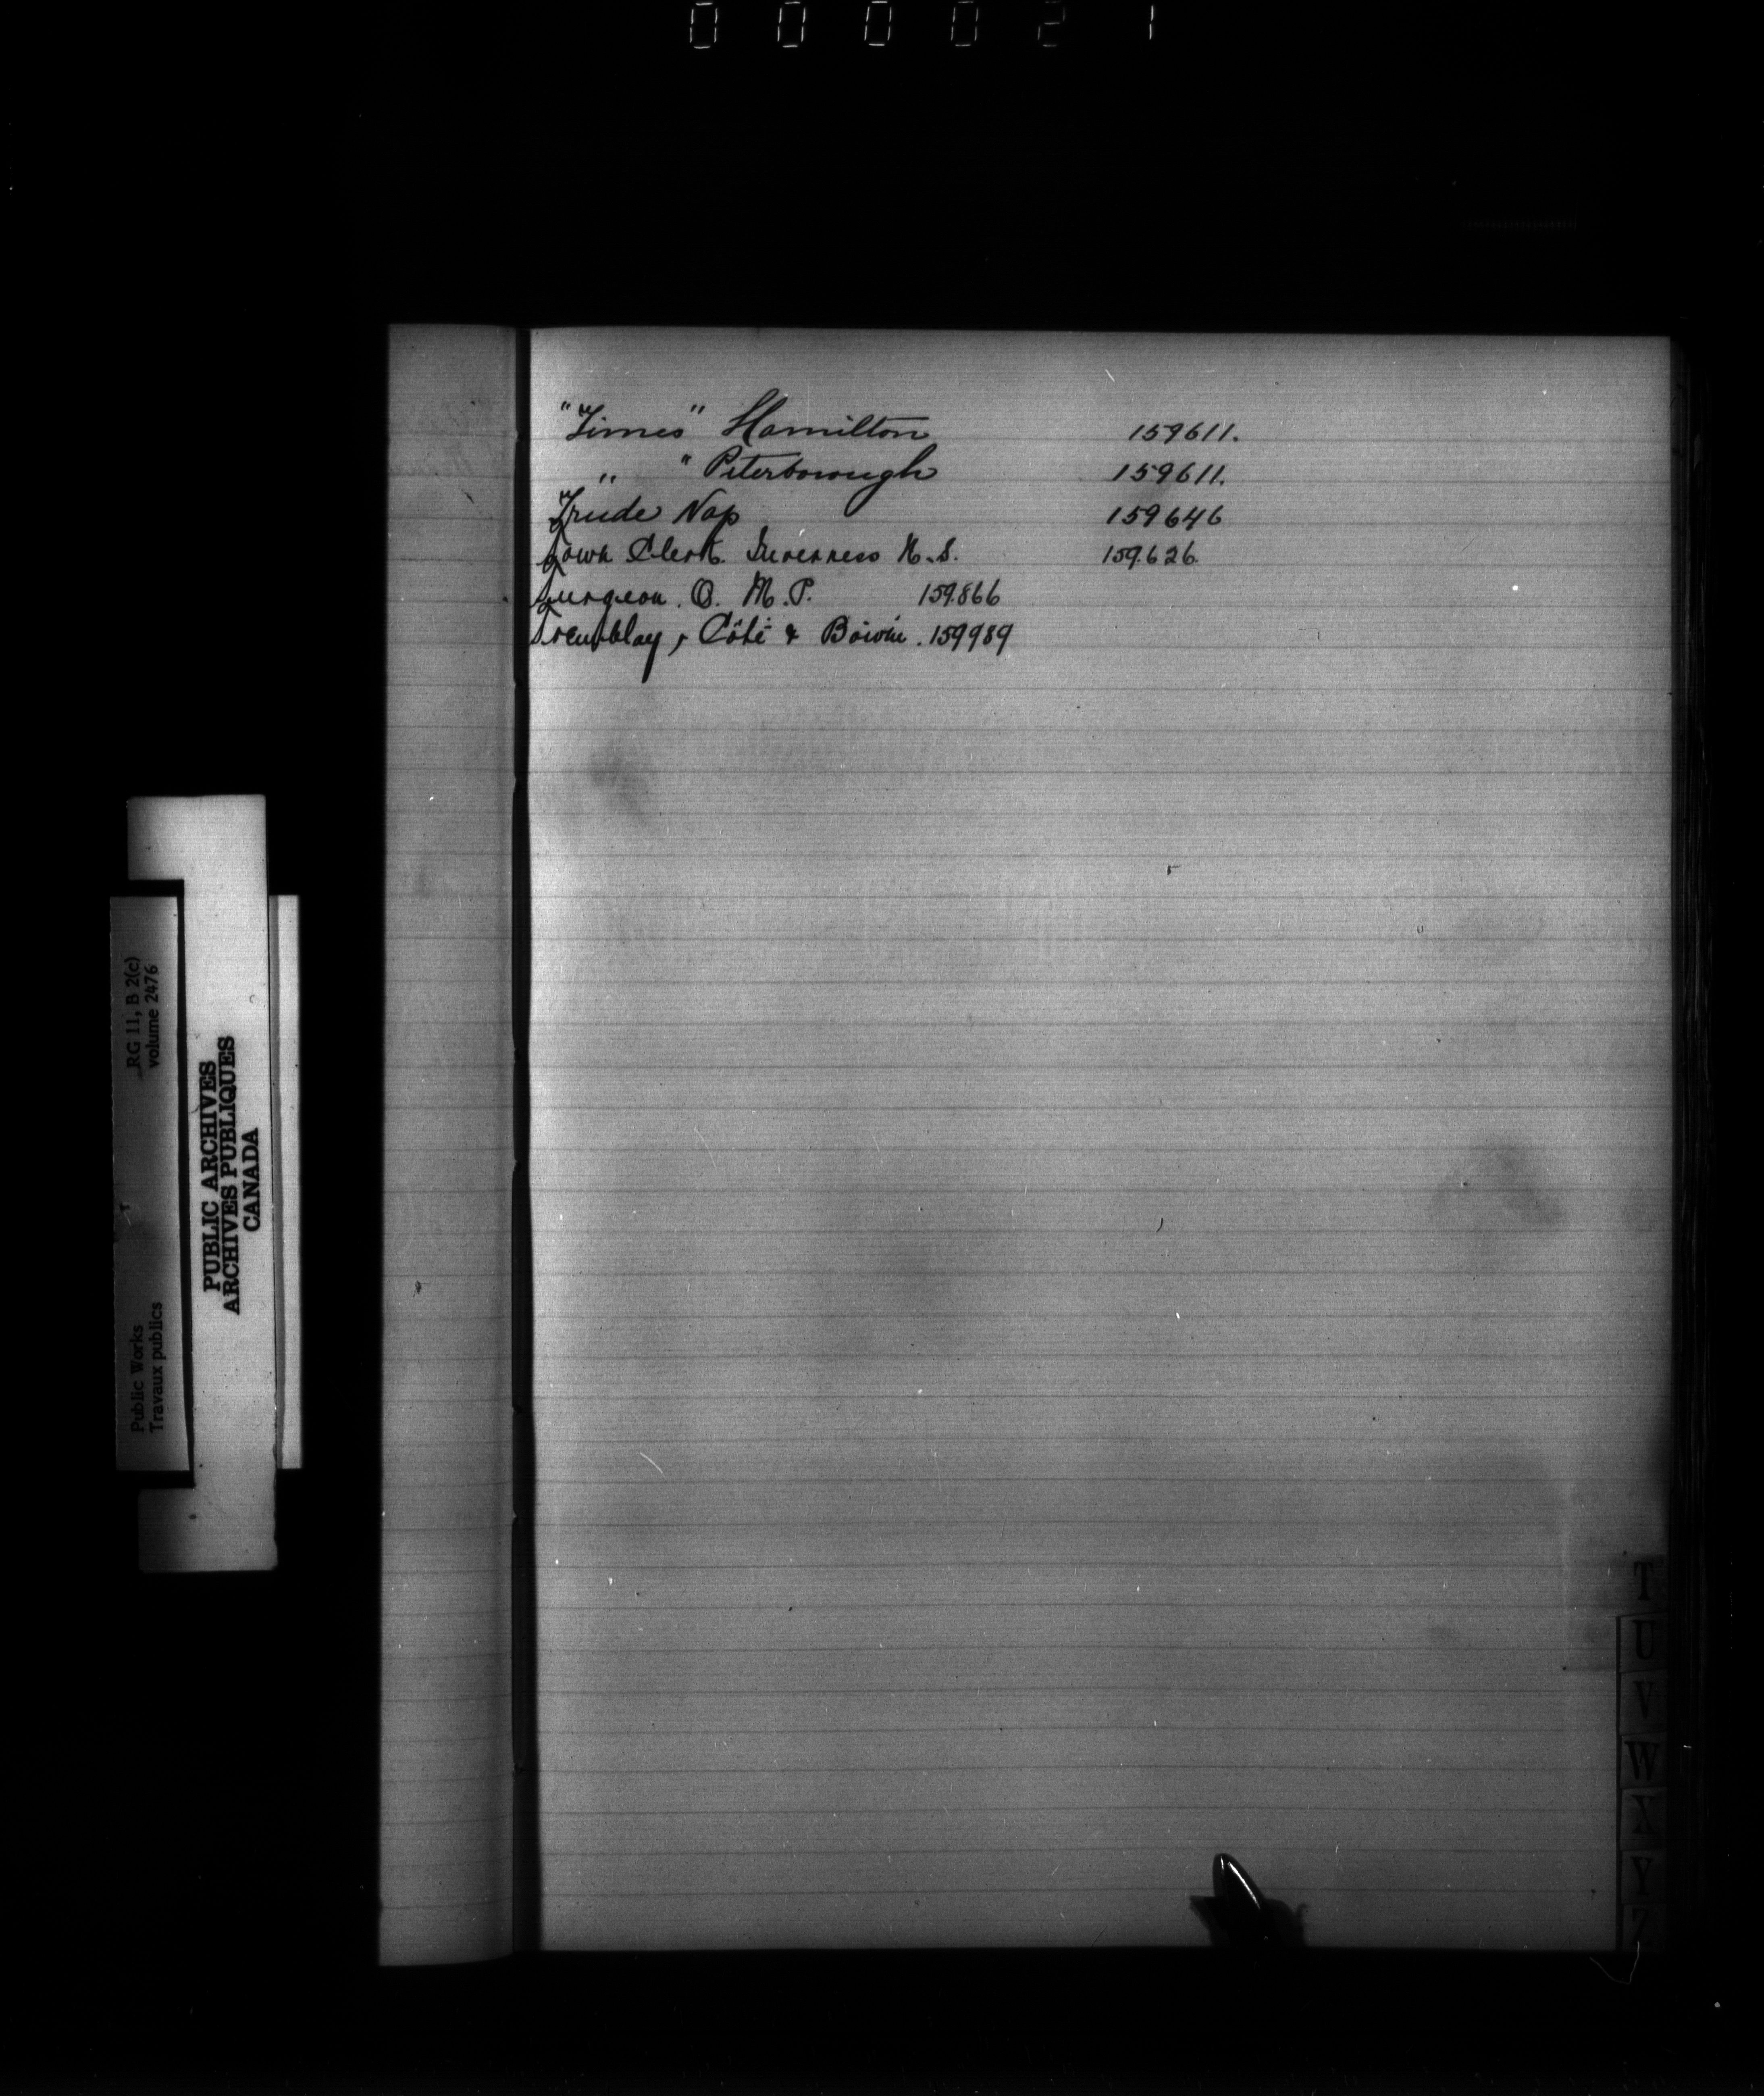 000021
"Times" Hamilton 159611.
" " Peterborough 159611.
Trude Nap 159646
Town Clerk. Inverness N.S. 159.626.
Turgeon. O. M.P. 159.866
Tremblay, Côté & Boivin. 159989
RG 11, B 2(c)
volume 2476
Public Works
Travaux publics
PUBLIC ARCHIVES
ARCHIVES PUBLIQUES
CANADA
T
U
V
W
X
Y
Z